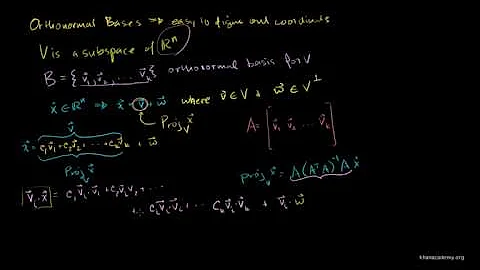 Orthonormal Bases ⇒ easy to figure out coordinates
V is a subspace of ℝⁿ
B = {v⃗₁, v⃗₂, ... v⃗ₖ} orthonormal basis for V
x⃗ ∈ ℝⁿ ⇒ x⃗ = v⃗ + w⃗ where v⃗ ∈ V + w⃗ ∈ V⊥
Projᵥ x⃗
v⃗
x⃗ = c₁v⃗₁ + c₂v⃗₂ + ... + cₖv⃗ₖ + w⃗
Projᵥ x⃗
A = [v⃗₁ v⃗₂ ... v⃗ₖ]
projᵥ x⃗ = A(AᵀA)⁻¹A x⃗
v⃗ᵢ · x⃗ = c₁v⃗ᵢ · v⃗₁ + c₂v⃗ᵢ v⃗₂ + ...
+ cᵢv⃗ᵢ · v⃗ᵢ + ... cₖv⃗ᵢ · v⃗ₖ + v⃗ᵢ · w⃗
khanacademy.org